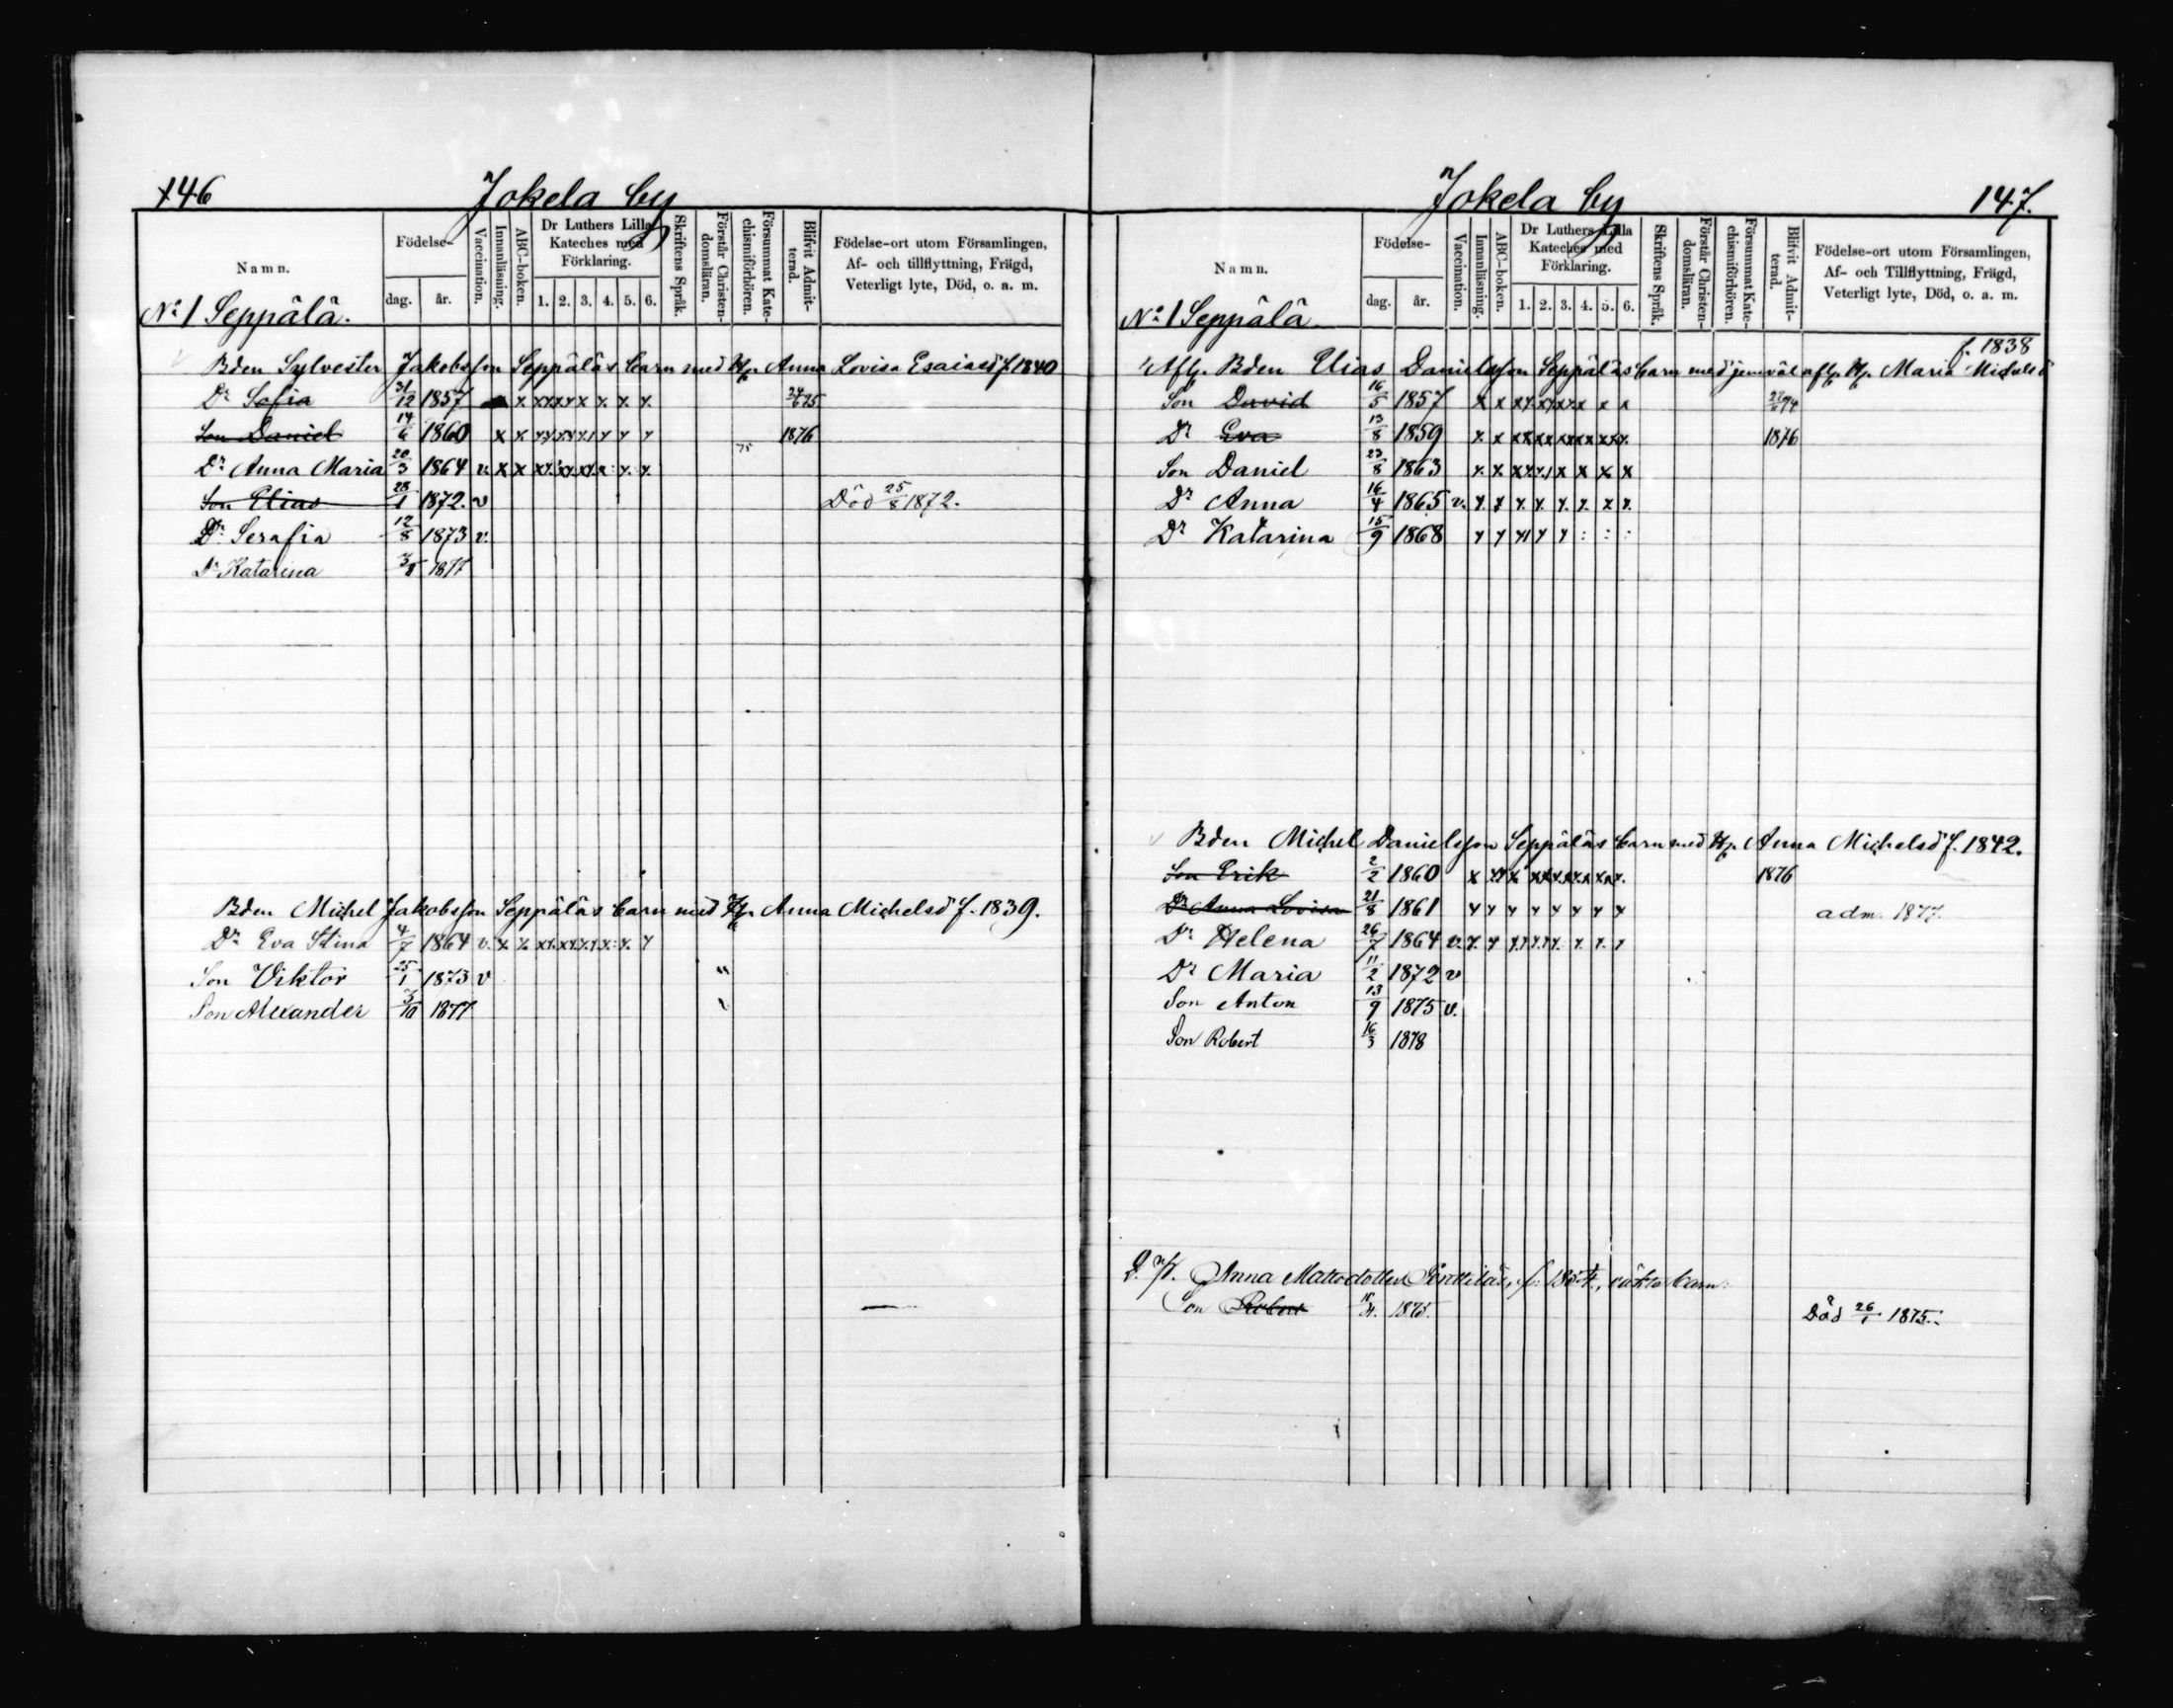 146 Jokela by
Namn. Födelse- dag. år. Vaccination. Innanläsning. ABC-boken. Dr Luthers Lilla Kateches med Förklaring. 1. 2. 3. 4. 5. 6. Skriftens Språk. Förstår Christen-domsläran. Försummat Kate-chismiförhören. Blifvit Admit-terad. Födelse-ort utom Församlingen, Af- och tillflyttning, Frägd, Veterligt lyte, Död, o. a. m.
No 1 Seppälä.
Bden Sylvester Jakobsson Seppäläs barn med H. Anna Lovisa Esaiasd f. 1840
Dr Sofia 31/12 1857 x x x x x x x x 24/6 75
Son Daniel 14/6 1860 x x x x x x x x 75 1876
Dr Anna Maria 20/3 1864 v. x x x x x x x x
Son Elias 28/1 1872. v Död 25/8 1872.
Dr Serafia 12/8 1873 v.
Dr Katarina 3/8 1877
Bden Michel Jakobsson Seppäläs barn med H. Anna Michelsd f. 1839.
Dr Eva Stina 4/7 1864 v. x x x x x x x x
Son Viktor 25/1 1873 v "
Son Alexander 3/10 1877
Jokela by 147.
Namn. Födelse- dag. år. Vaccination. Innanläsning. ABC-boken. Dr Luthers Lilla Kateches med Förklaring. 1. 2. 3. 4. 5. 6. Skriftens Språk. Förstår Christen-domsläran. Försummat Kate-chismiförhören. Blifvit Admit-terad. Födelse-ort utom Församlingen, Af- och Tillflyttning, Frägd, Veterligt lyte, Död, o. a. m.
No 1 Seppälä
f. 1838
Afl. Bden Elias Danielsson Seppäläs barn med jemväl afl. H. Maria Michelsd
Son David 16/5 1857 x x x x x x x x
Dr Eva 13/8 1859 x x x x x x x x 1876
Son Daniel 23/8 1863 x x x x x x x x
Dr Anna 16/4 1865 v. x x x x x x x x
Dr Katarina 15/9 1868 x x x x x : : :
Bden Michel Danielsson Seppäläs barn med H. Anna Michelsd f. 1842.
Son Erik 2/2 1860 x x x x x x x x 1876
Dr Anna Lovisa 21/8 1861 x x x x x x x x adm. 1877.
Dr Helena 26/7 1864 v. x x x x x x x x
Dr Maria 11/2 1872 v
Son Anton 13/9 1875 v.
Son Robert 16/3 1878
Anna Matsdotter barn:
Son 1875. Död 26/1 1875.